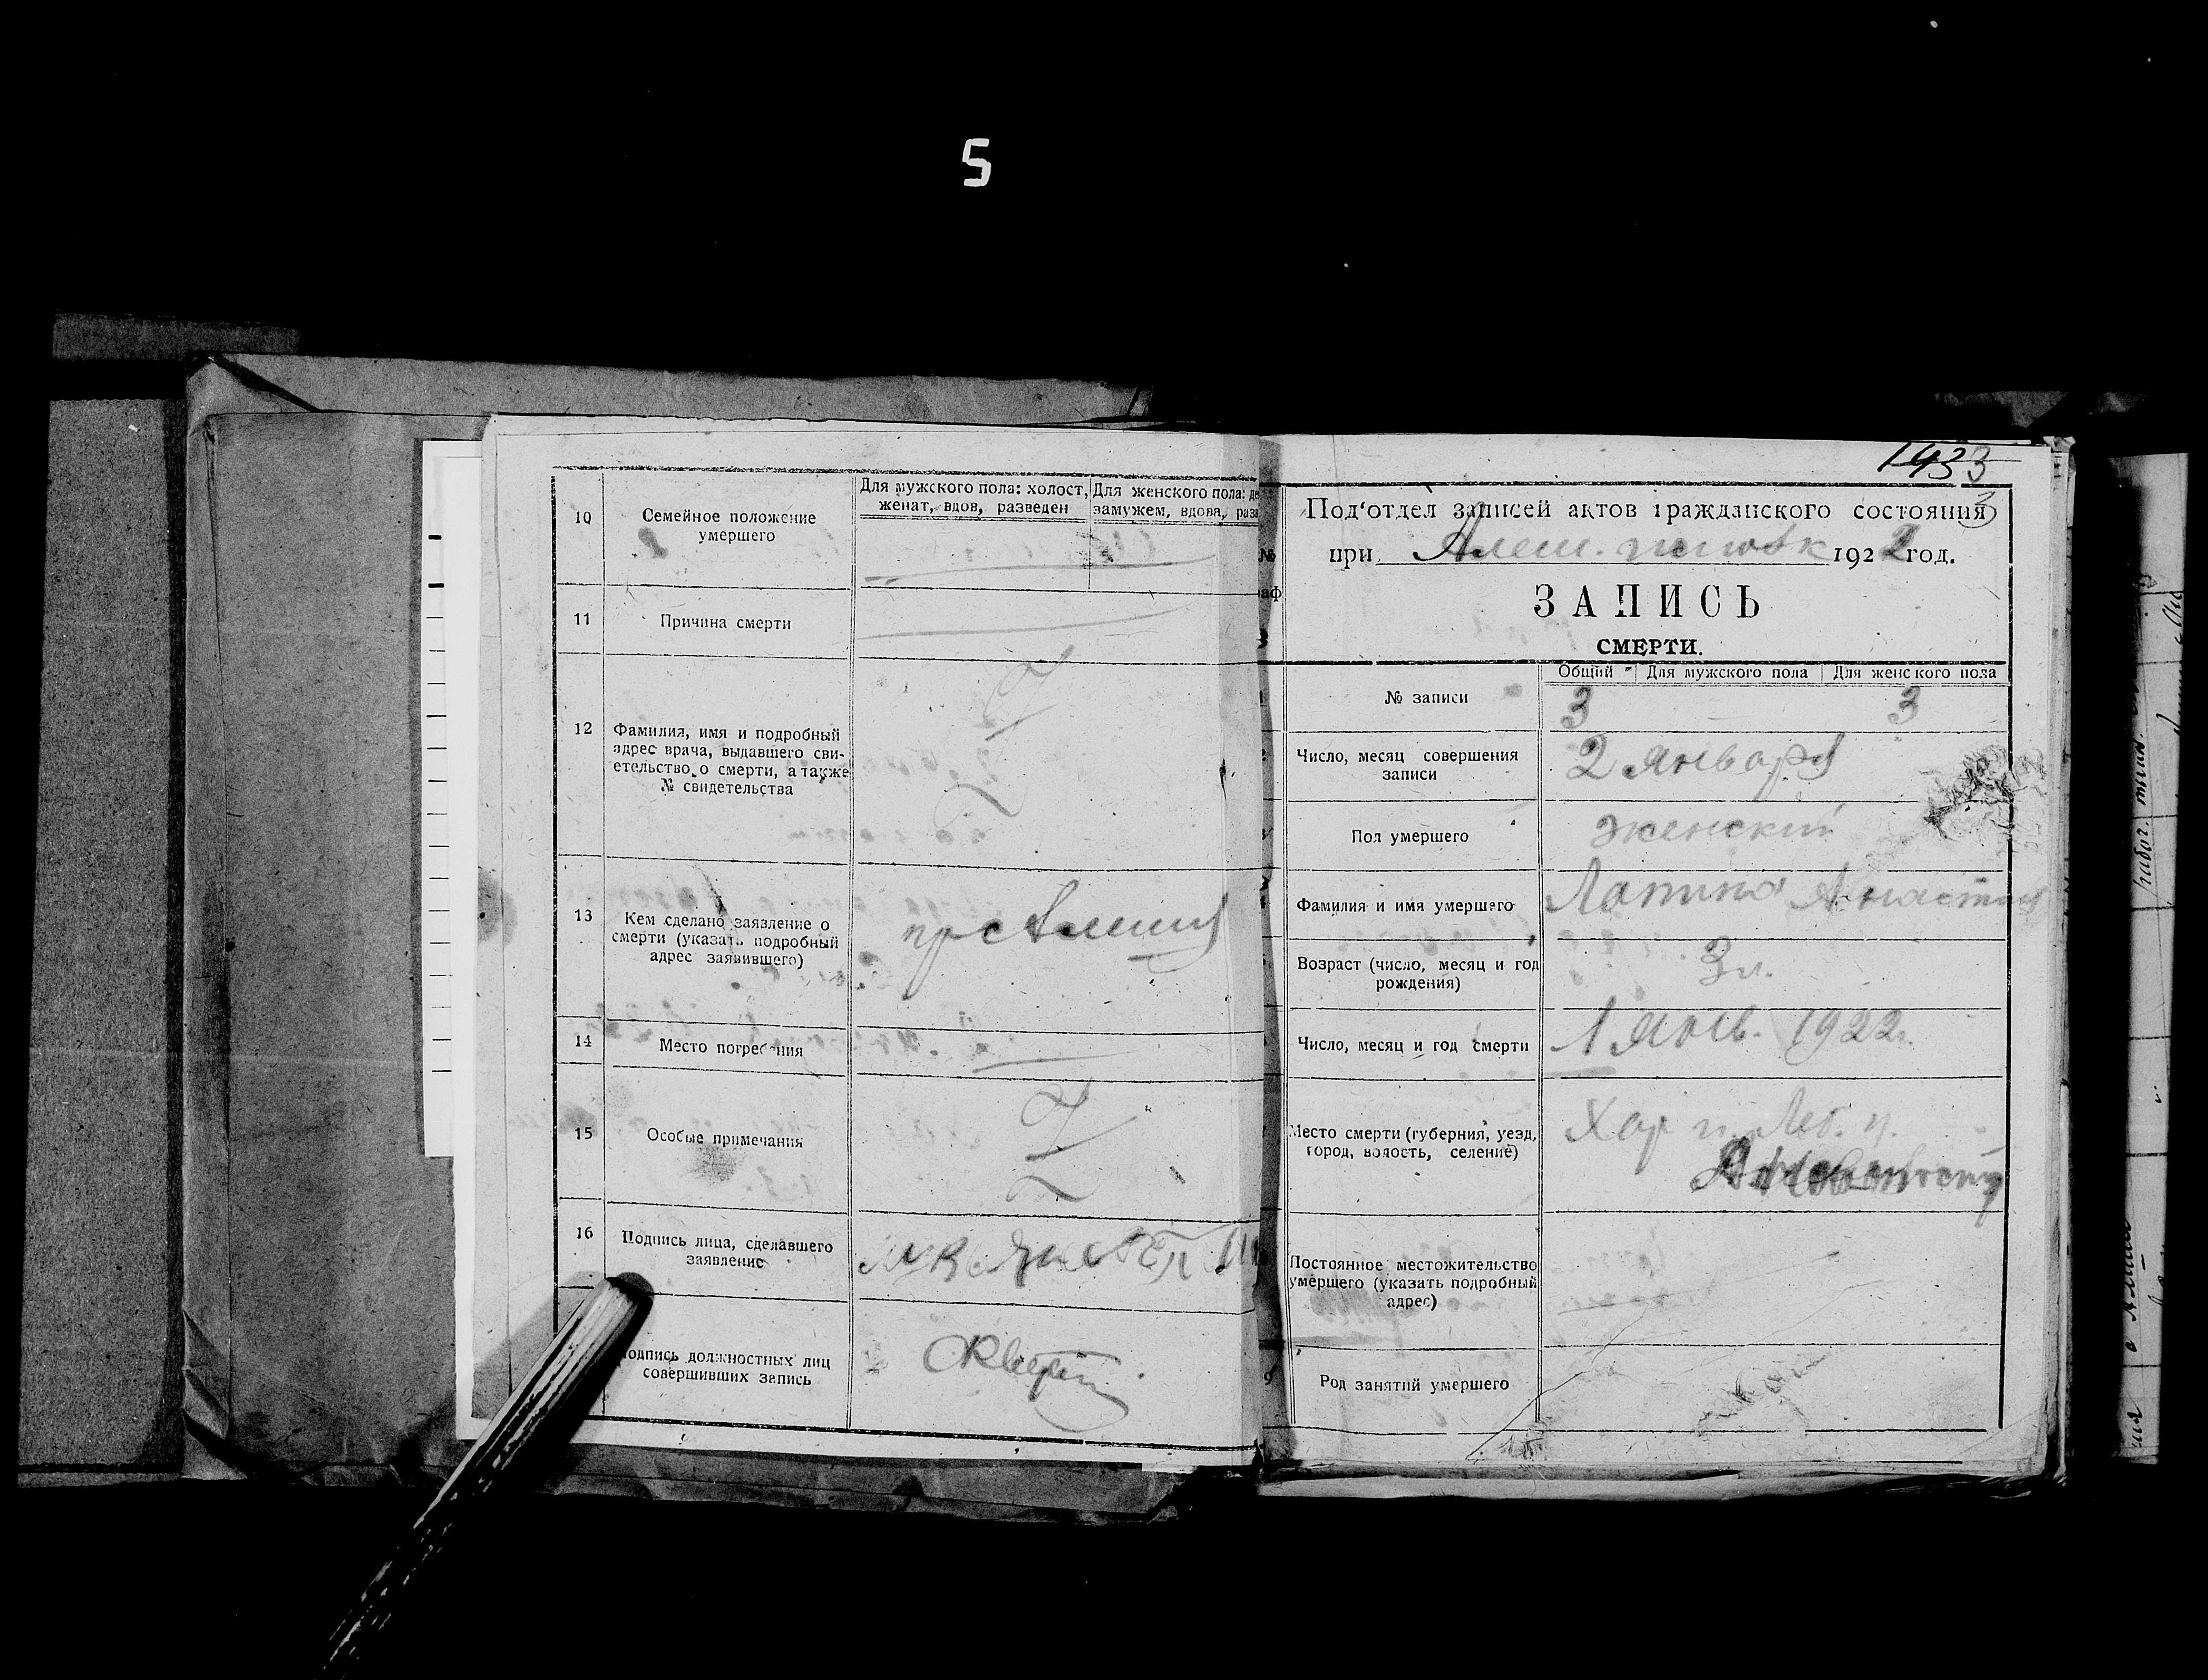 5
10
Семейное положение
умершего
Для мужского пола: холост,
женат, вдов, разведен
Для женского пола: де
замужем, вдова, разв
11
Причина смерти
12
Фамилия, имя и подробный
адрес врача, выдавшего сви-
етельство о смерти, а также
№ свидетельства
13
Кем сделано заявление о
смерти (указать подробный
адрес заявившего)
14
Место погребения
15
Особые примечания
16
Подпись лица, сделавшего
заявление
одпись должностных лиц
совершивших запись
3
Под'отдел записей актов гражданского состояния
при 1922 год.
ЗАПИСЬ
СМЕРТИ.
Общий Для мужского пола Для женского пола
№ записи
3 3
Число, месяц совершения
записи
2 января
Пол умершего
женский
Фамилия и имя умершего
Лапина Анастасия
Возраст (число, месяц и год
рождения)
3 л.
Число, месяц и год смерти
1 янв. 1922 г.
Место смерти (губерния, уезд,
город, волость, селение)
Хар г. Леб. у.
Постоянное местожительство
умершего (указать подробный
адрес)
9
Род занятий умершего